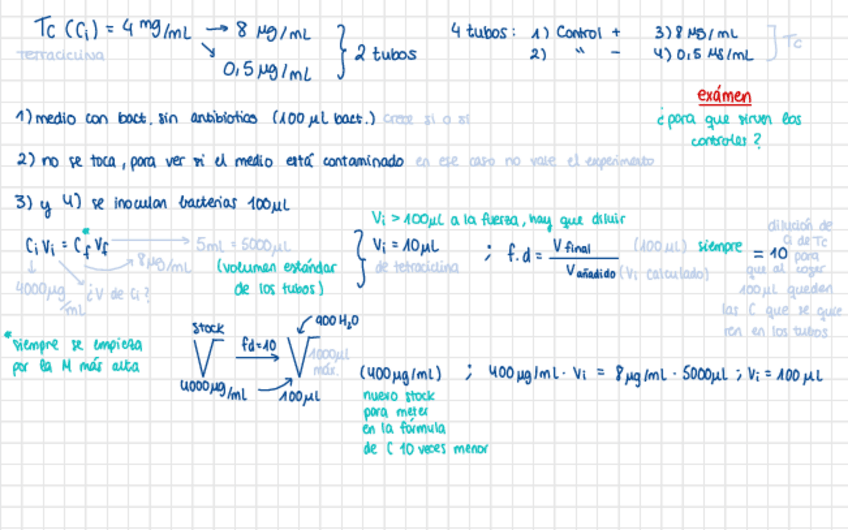 Tc (Ci) = 4 mg/mL → 8 µg/mL
Terraciclina ↘ 0,5 µg/mL } 2 tubos
4 tubos: 1) Control + 3) 8 µg/mL
2) " - 4) 0,5 µg/mL ] Tc
exámen
¿para que sirven los
controles?
1) medio con bact. sin antibiotico (100 µL bact.) crece sí o sí
2) no se toca, para ver si el medio está contaminado en ese caso no vale el experimento
3) y 4) se inoculan bacterias 100µL
Ci Vi = Cf* Vf → 5mL = 5000µL
→ 8µg/mL
4000µg/mL ¿V de Ci?
(volumen estándar
de los tubos)
Vi > 100µL a la fuerza, hay que diluir
Vi = 10µL
de tetraciclina
; f.d = V final / V añadido (100µL) siempre = 10
(Vi calculado)
dilución de
Ci de Tc
para
que al coger
100µL queden
las C que se quie
ren en los tubos
* siempre se empieza
por la M más alta
Stock
4000µg/mL
fd=10
900 H₂O
1000µL
más.
100µL
(400µg/mL) ; 400µg/mL · Vi = 8µg/mL · 5000µL ; Vi = 100µL
nuevo stock
para meter
en la fórmula
de C 10 veces menor